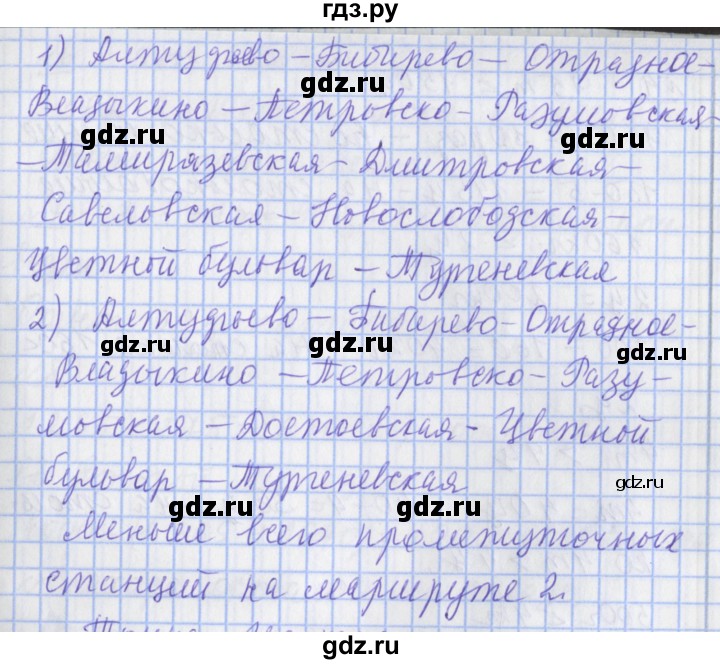 гдз.ру
1) Алтуфьево – Бибирево – Отрадное –
Владыкино – Петровско – Разумовская –
– Тимирязевская – Дмитровская –
Савеловская – Новослободская –
Цветной бульвар – Тургеневская
2) Алтуфьево – Бибирево – Отрадное –
Владыкино – Петровско – Разу –
мовская – Достоевская – Цветной
бульвар – Тургеневская
Меньше всего промежуточных
станций на маршруте 2.
gdz.ru
gdz.ru
gdz.ru
gdz.ru
gdz.ru
gdz.ru
gdz.ru
gdz.ru
gdz.ru
gdz.ru
gdz.ru
gdz.ru
gdz.ru
gdz.ru